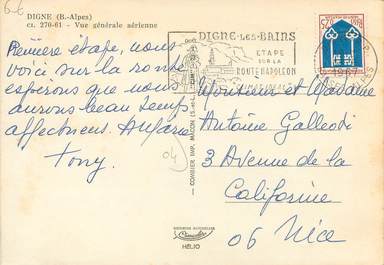 6-6
DIGNE (B.-Alpes)
CI. 270-61 - Vue générale aérienne
DIGNE-LES-BAINS
ETAPE
SUR LA
ROUTE NAPOLEON
0,25
1967
Première étape, nous
voici sur la route
espérons que nous
aurons beau temps
affectueus
Tony
04
COMBIER IMP. MACON
Monsieur et Madame
Antoine Galleodi
3 Avenue de la
Californie
06 Nice
HÉLIO